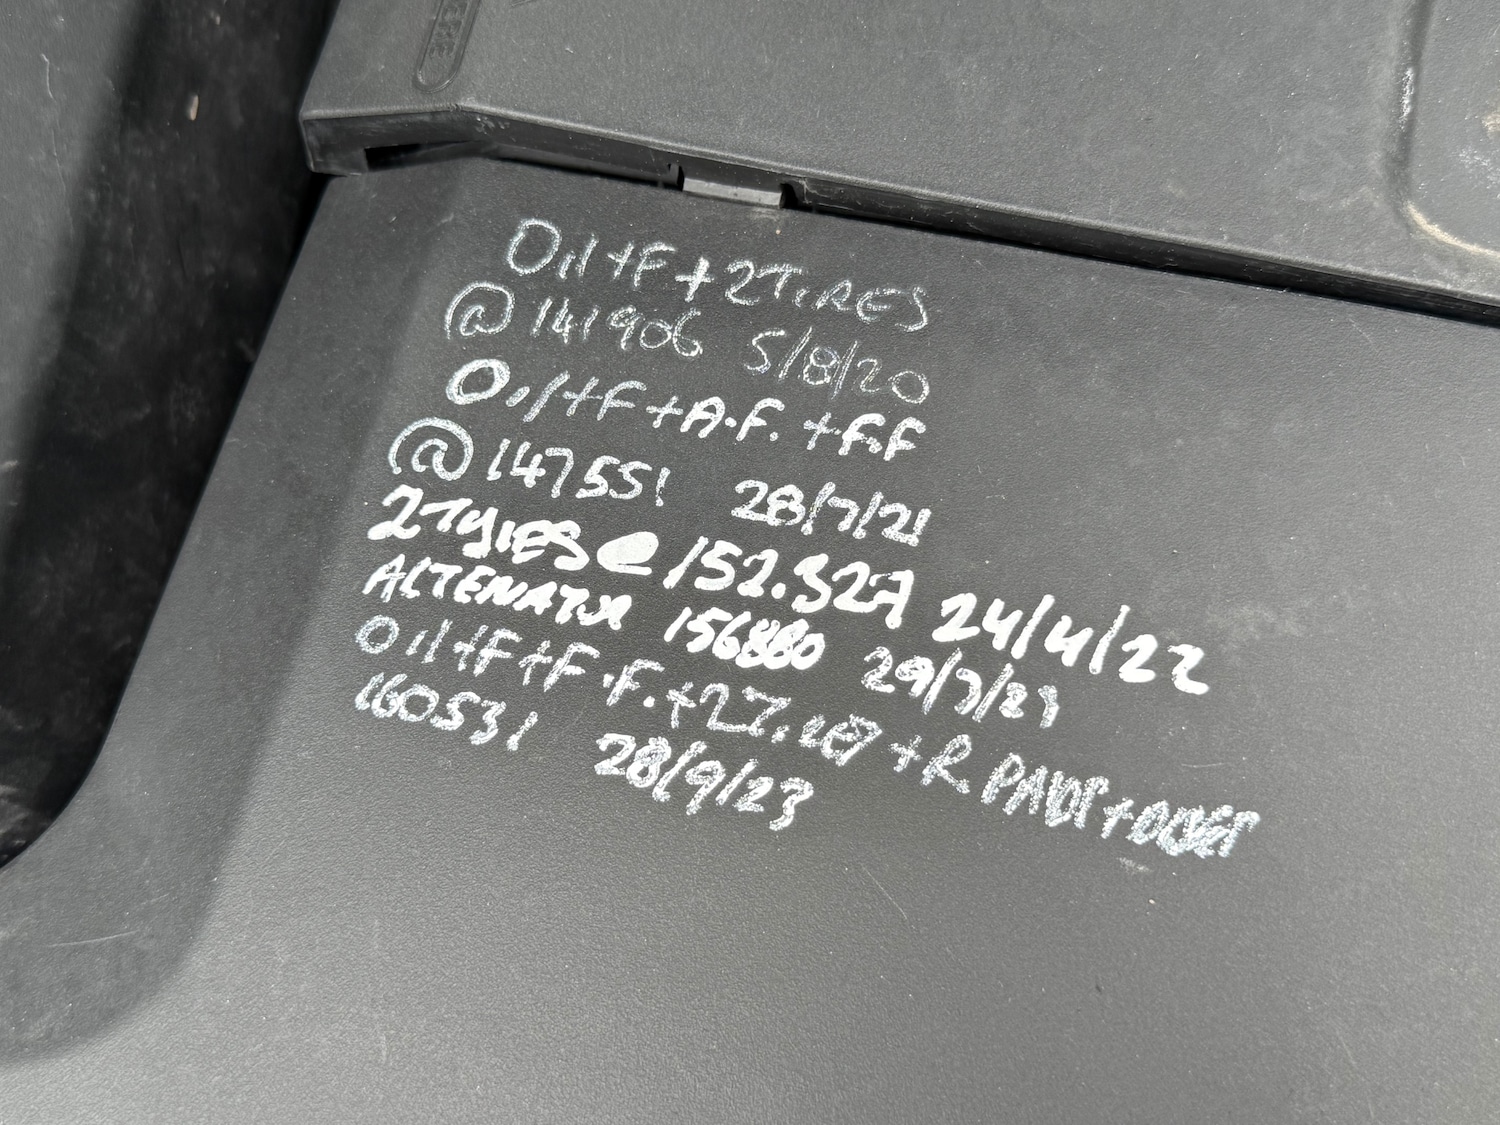 Oil+F + 2 TIRES
@ 141906 5/8/20
Oil+F + A.F. + F.F
@ 147551 28/7/21
2 TYIRES @ 152.327 24/4/22
ALTENATOR 156880 29/3/23
Oil+F + F.F. + 2 + R PADS +
160531 28/9/23